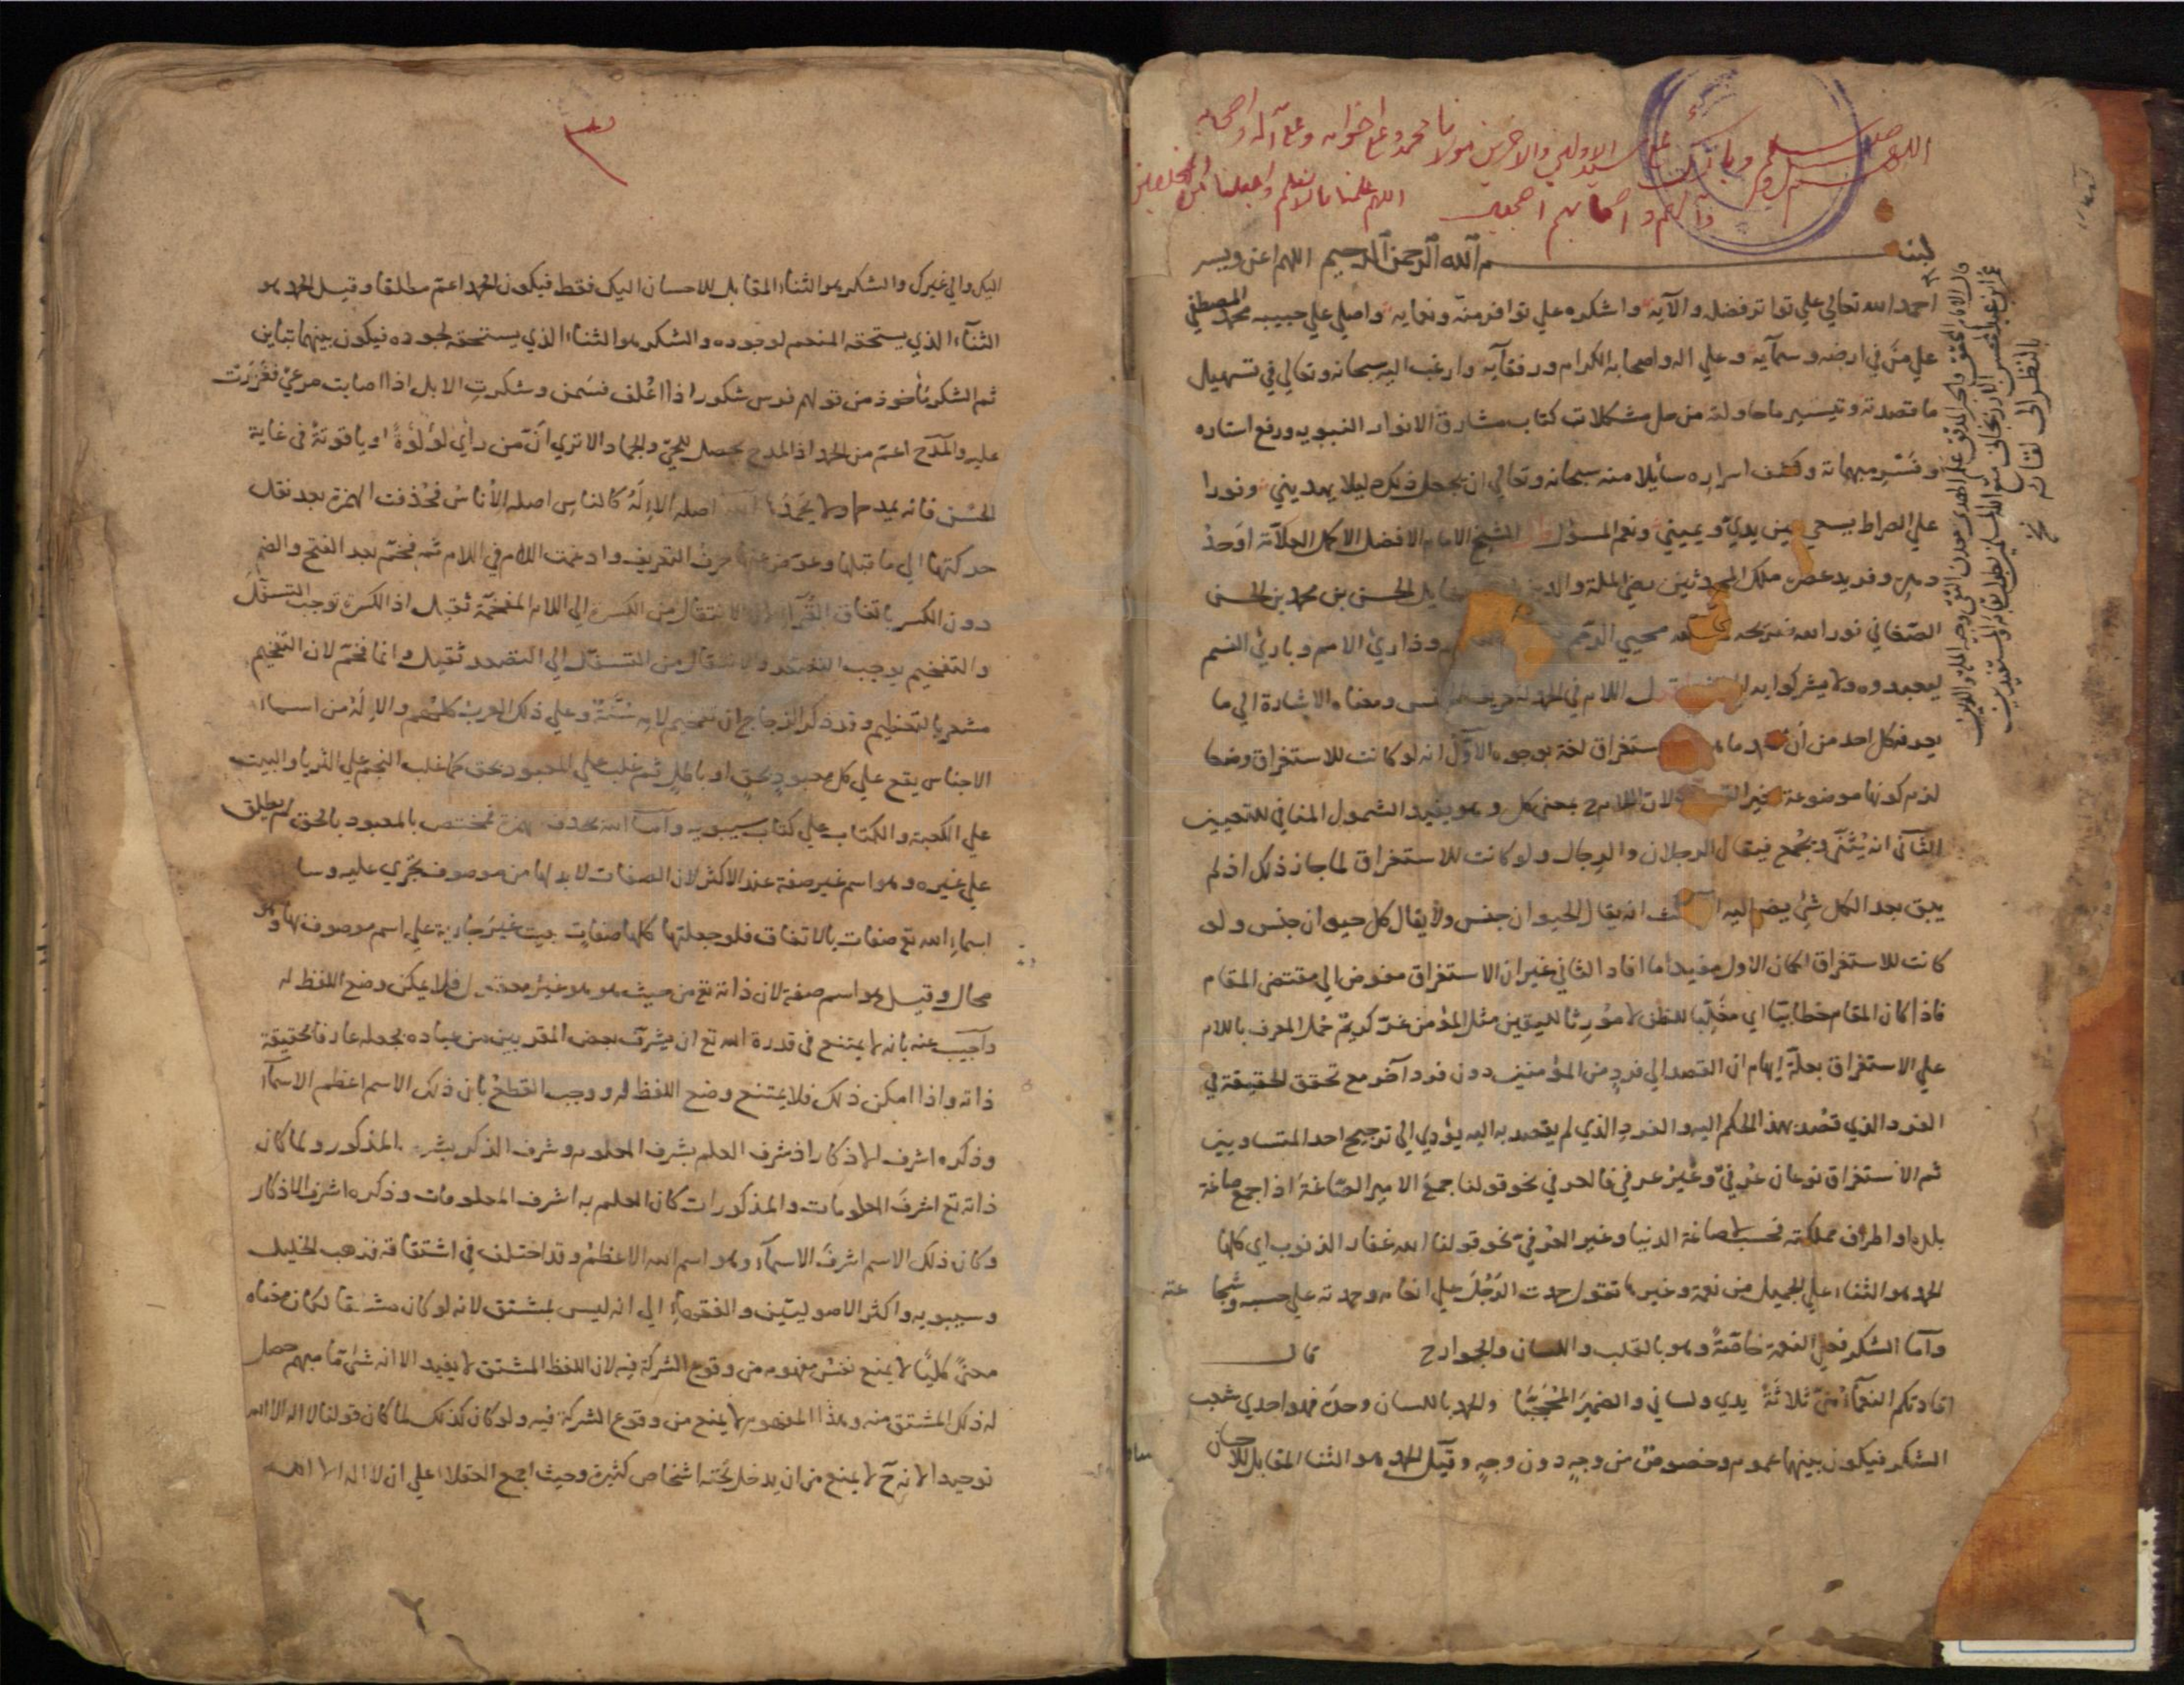 اللهم صل وسلم وبارك على سيد الاولين والاخرين مولانا محمد وعلى اخوانه وعلى آله واصحابه
وآلهم واصحابهم اجمعين اللهم علمنا واجعلنا من المخلصين
بسم الله الرحمن الرحيم اللهم اعن ويسر
احمد الله تعالي علي تواتر فضله والآيه واشكره علي توافر منه ونعمايه واصلي علي حبيبه محمد المصطفي
علي من في ارضه وسمآيه وعلي اله واصحابه الكرام ورفقآيه وارغب اليه سبحانه وتعالي في تسهيل
ما قصدته وتيسير ما حاولته من حل مشكلات كتاب مشارق الانوار النبويه ورفع استاره
وفسر مبهماته وكشف اسراره سآيلا منه سبحانه وتعالي ان يجعل ذلك دليلا يهديني ونورا
علي الصراط يسعي بين يدي ويميني ونعم المسؤل الشيخ الامام الافضل الاكمل العلامة اوحد
دهره وفريد عصره ملك المحدثين رضي الملة والدين الحسن بن محمد بن الحسن
الصغاني نور الله ضريحه محيي الرمم وذاري الامم وباري النسم
ليعبدوه ولا يشركوا به اللام في الحمد لتعريف الجنس ومعناه الاشارة الي ما
يعرفه كل احد من ان الحمد ما هو ستغراق لغة بوجوه الاول انه لو كانت للاستغراق وضعا
لزم كونها موضوعة لغير لان اللام بمعني كل وهو يفيد الشمول المنافي للتعيين
الثاني انه يثني ويجمع فيقال الرجلان والرجال ولو كانت للاستغراق لما جاز ذلك اذ لم
يبق بعد الكل شئ يضم اليه الثالث انه يقال الحيوان جنس ولا يقال كل حيوان جنس ولو
كانت للاستغراق لكان الاول مفيدا ما افاد الثاني غير ان الاستغراق مفوض الي مقتضي المقام
فاذا كان المقام خطابيا اي مغلبا للظن لا مورثا لليقين مثل المؤمن غر كريم حمل المعرف باللام
علي الاستغراق بعلة ايهام ان القصد الي فرد من المؤمنين دون فرد آخر مع تحقق الحقيقة في
الفرد الذي قصد بهذا الحكم اليه والفرد الذي لم يقصد به اليه يؤدي الي ترجيح احد المتساويين
ثم الاستغراق نوعان عرفي وغير عرفي فالعرفي نحو قولنا جمع الامير الصاغة اذا جمع صاغة
بلده او اطراف مملكته فحسب لا صاغة الدنيا وغير العرفي نحو قولنا الله غفار الذنوب اي كلها
الحمد هو الثناء علي الجميل من نعمة وغيرها تقول حمدت الرجل علي انعامه وحمدته علي حسبه وشجاعته
وآما الشكر فعلي النعمة خاصة وهو بالقلب واللسان والجوارح قال
افادتكم النعمآء مني ثلاثة يدي ولساني والضمير المحجبا والحمد باللسان وحده فهو احدي شعب
الشكر فيكون بينهما عموم وخصوص من وجه دون وجه وقيل الحمد هو الثنا المقابل للاحسان
قال الامام المحقق والحبر المدقق علم الهدي معدن التقي وجيه الملة والدين
عمر ابن عبد المحسن الارزنجاني متع الله المسلمين بطول بقائه والمستفيدين
بالنظر الي لقائه
٣
اليك والي غيرك والشكر هو الثناء المقابل للاحسان اليك فقط فيكون الحمد اعم مطلقا وقيل الحمد هو
الثنآء الذي يستحقه المنعم لوجوده والشكر هو الثناء الذي يستحقه لجوده فيكون بينهما تباين
ثم الشكر مأخوذ من قولهم فرس شكور اذا اعلف فسمن وشكرت الابل اذا اصابت مرعي فغزرت
عليه والمدح اعم من الحمد اذ المدح يحصل للحي والجماد الا تري ان من رأي لؤلؤة او ياقوتة في غاية
الحسن فانه يمدحها ولا يحمدها الله اصله الاله كالناس اصله الاناس فحذفت الهمزة بعد نقل
حركتها الي ما قبلها وعوض عنها حرف التعريف وادغمت اللام في اللام ثم فخم بعد الفتح والضم
دون الكسر باتفاق القرآء لان الانتقال من الكسرة الي اللام المفخمة ثقيل اذ الكسرة توجب التسفل
والتفخيم يوجب التصعد والانتقال من التسفل الي التصعد ثقيل وانما فخم لان التفخيم
مشعر بالتعظيم وقد ذكر الزجاج ان تفخيم لامه سنة وعلي ذلك العرب كلهم والاله من اسماء
الاجناس يقع علي كل معبود بحق او باطل ثم غلب علي المعبود بحق كما غلب النجم علي الثريا والبيت
علي الكعبة والكتاب علي كتاب سيبويه وآما الله بحذف الهمزة فمختص بالمعبود بالحق لم يطلق
علي غيره وهو اسم غير صفة عند الاكثر لان الصفات لا بد لها من موصوف تجري عليه وسا
اسماء الله تع صفات بالاتفاق فلو جعلتها كلها صفات بقيت غير جارية علي اسم موصوف بها وهو
محال وقيل هو اسم صفة لان ذاته تع من حيث هو هو غير معقول فلا يمكن وضع اللفظ له
وآجيب عنه بانه لا يمتنع في قدرة الله تع ان يشرف بعض المقربين من عباده بجعله عارفا لحقيقة
ذاته واذا امكن ذلك فلا يمتنع وضع اللفظ له ووجب القطع بان ذلك الاسم اعظم الاسمآء
وذكره اشرف الاذكار اذ شرف العلم بشرف المعلوم وشرف الذكر بشرف المذكور ولما كان
ذاته تع اشرف المعلومات والمذكورات كان العلم به اشرف المعلومات وذكره اشرف الاذكار
وكان ذلك الاسم اشرف الاسمآء وهو اسم الله الاعظم وقد اختلف في اشتقاقه فذهب الخليل
وسيبويه واكثر الاصوليين والفقهاء الي انه ليس بمشتق لانه لو كان مشتقا لكان معناه
معني كليا لا يمنع نفس مفهومه من وقوع الشركة فيه لان اللفظ المشتق لا يفيد الا انه شئ ما مبهم حصل
له ذلك المشتق منه وهذا المفهوم لا يمنع من وقوع الشركة فيه ولو كان كذلك لما كان قولنا لا اله الا الله
توحيدا لانه ح لا يمنع من ان يدخل تحته اشخاص كثيرة وحيث اجمع العقلا علي ان لا اله الا الله